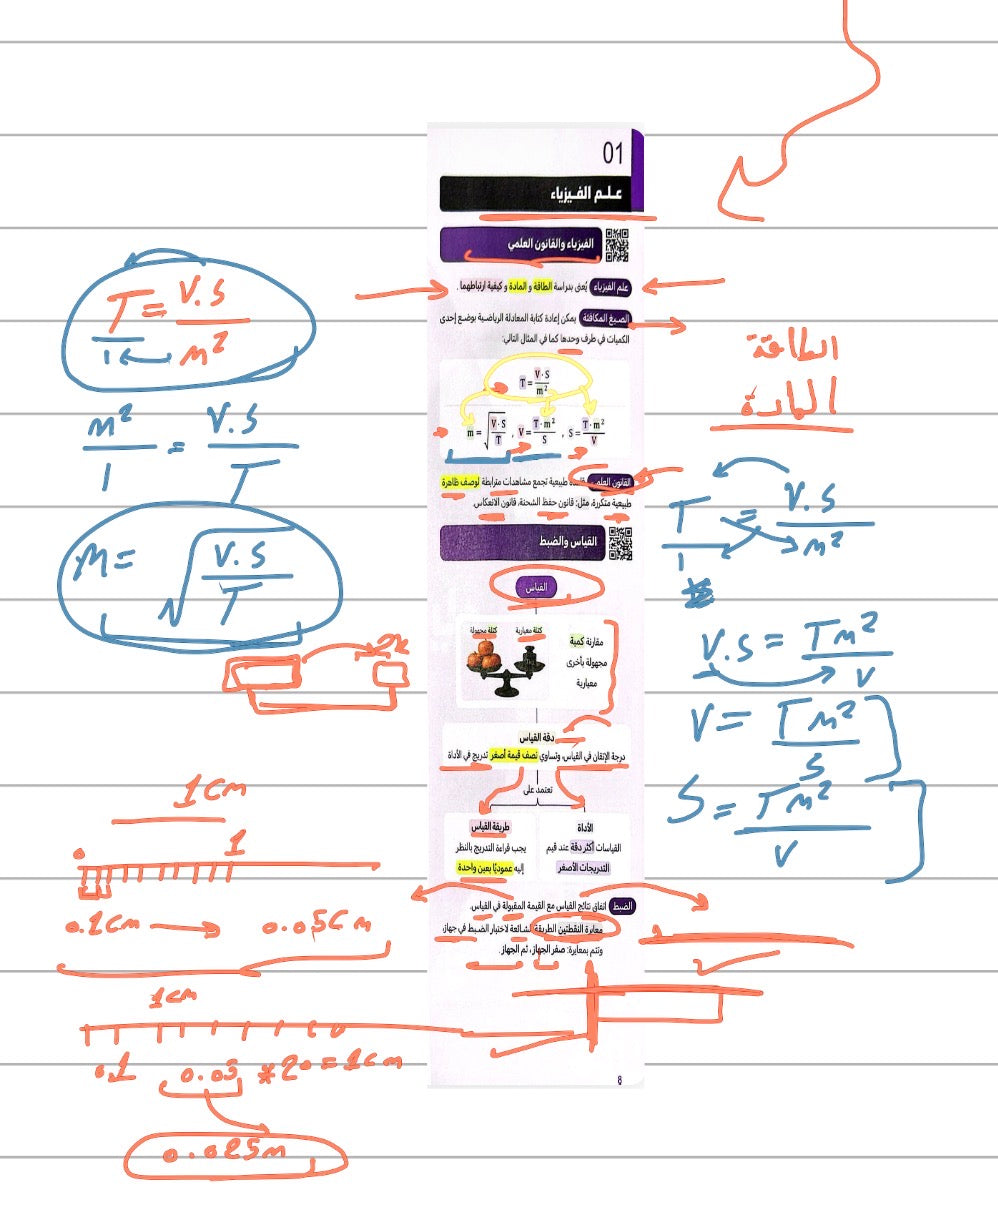 01
علم الفيزياء
الفيزياء والقانون العلمي
علم الفيزياء يُعنى بدراسة الطاقة و المادة و كيفية ارتباطهما .
الصيغ المكافئة يمكن إعادة كتابة المعادلة الرياضية بوضع إحدى
الكميات في طرف وحدها كما في المثال التالي:
T = V·S / m²
m = √(V·S / T) , V = T·m² / S , S = T·m² / V
القانون العلمي طبيعية تجمع مشاهدات مترابطة لوصف ظاهرة
طبيعية متكررة، مثل: قانون حفظ الشحنة، قانون الانعكاس
القياس والضبط
القياس
كتلة معيارية كتلة مجهولة
مقارنة كمية
مجهولة بأخرى
معيارية
دقة القياس
درجة الإتقان في القياس، وتساوي نصف قيمة أصغر تدريج في الأداة
تعتمد على
الأداة
القياسات أكثر دقة عند قيم
التدريجات الأصغر
طريقة القياس
يجب قراءة التدريج بالنظر
إليه عموديًا بعين واحدة
الضبط اتفاق نتائج القياس مع القيمة المقبولة في القياس.
معايرة النقطتين الطريقة الشائعة لاختبار الضبط في جهاز،
وتتم بمعايرة: صفر الجهاز، ثم الجهاز.
8
T = V.S / m²
1
m² / 1 = V.S / T
m = √(V.S / T)
2x
1cm
0 1
0.1cm → 0.05cm
1cm
0.1 0.05 *20=1cm
0.025m
الطاقة
المادة
T / 1 = V.S / m²
V.S = Tm² / V
V = Tm² / S
S = Tm² / V